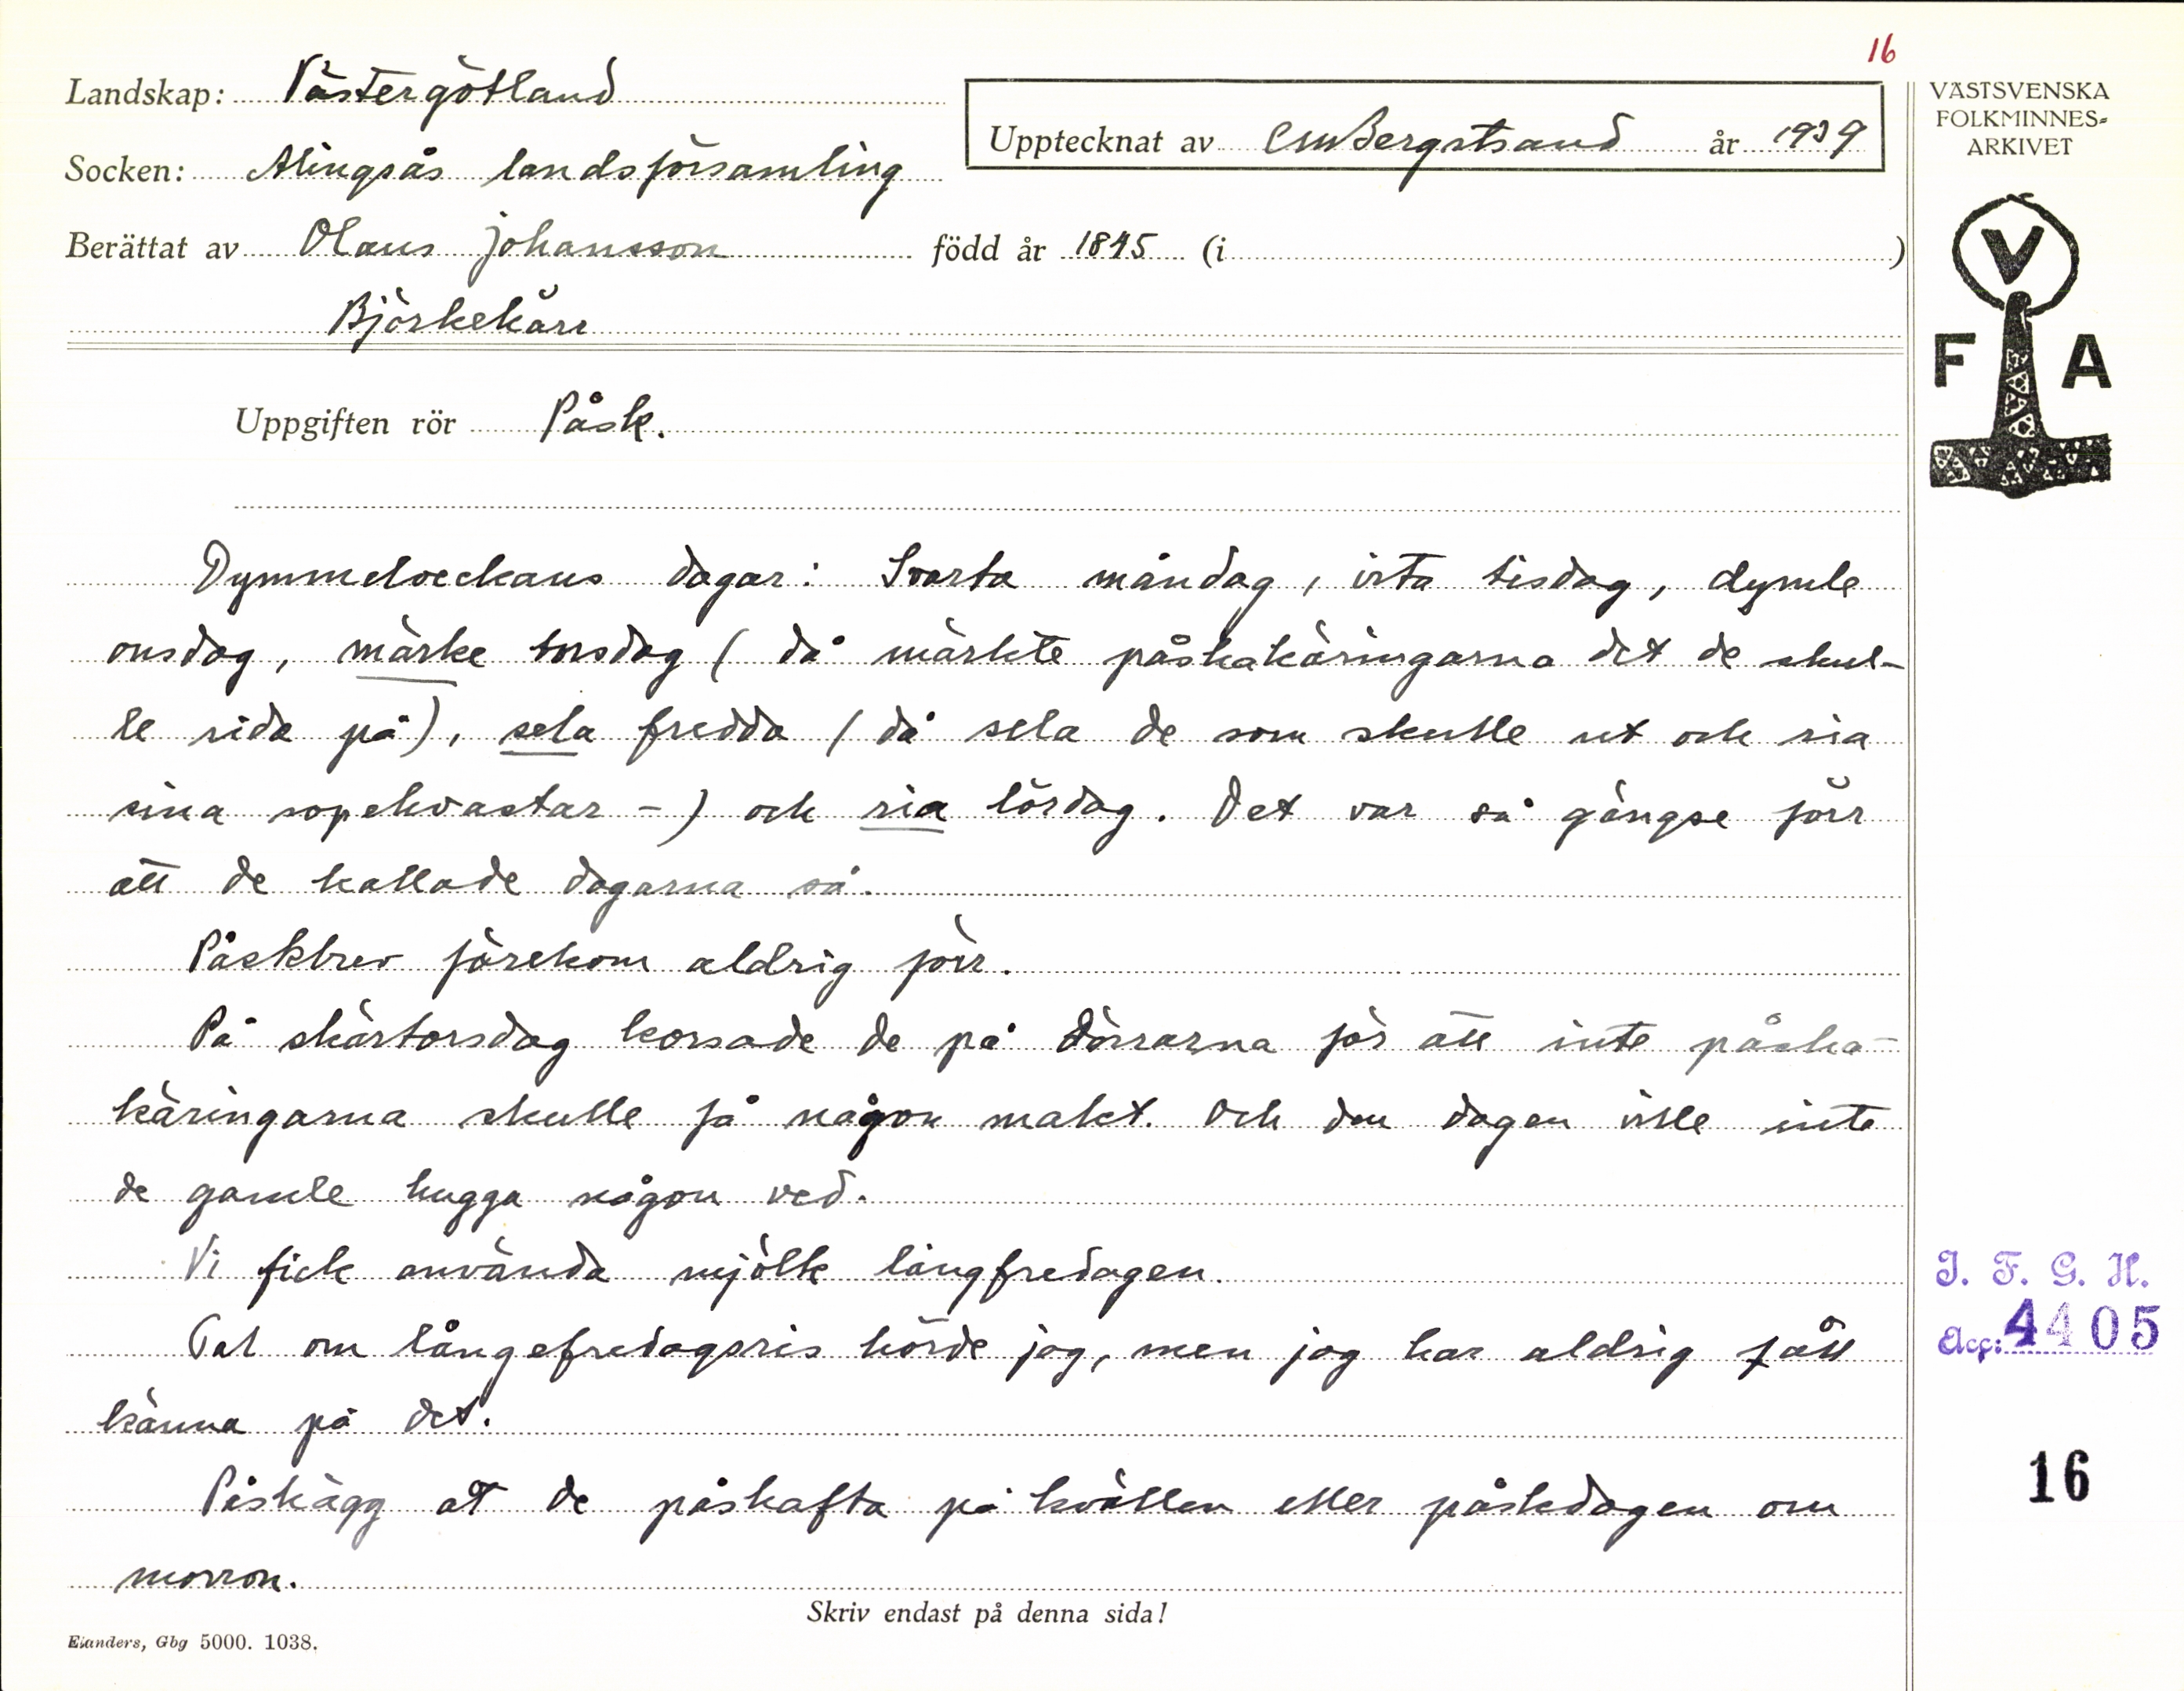 16
Landskap: Västergötland
Upptecknat av CMBergstrand år 1939
Socken: Alingsås landsförsamling
Berättat av Olaus Johansson född år 1845 (i )
Björkekärr
Uppgiften rör Påsk.
Dymmelveckans dagar: Svarta måndag, vita tisdag, dymle
onsdag, märke torsdag (då märkte påskakäringarna det de skul-
le rida på), sela fredda (då sela de som skulle ut och ria
sina sopekvastar -) och ria lördag. Det var så gängse förr
att de kallade dagarna så.
Påskbrev förekom aldrig förr.
På skärtorsdag korsade de på dörrarna för att inte påska-
käringarna skulle få någon makt. Och den dagen ville inte
de gamle hugga någon ved.
Vi fick använda mjölk långfredagen.
Tal om långefredagsris hörde jag, men jag har aldrig fått
känna på det.
Påskägg åt de påskafta på kvällen eller påskdagen om
morron.
Skriv endast på denna sida!
Elanders, Gbg 5000. 1038.
VÄSTSVENSKA
FOLKMINNES-
ARKIVET
V
F A
I. F. G. H.
Acc: 4405
16